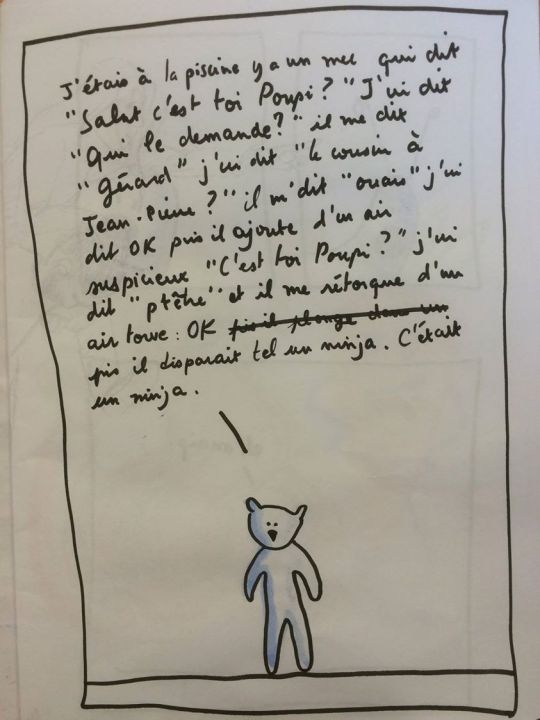 J'étais à la piscine y a un mec qui dit
"Salut c'est toi Poupi ?" J'ui dit
"Qui le demande ?" il me dit
"Gérard" j'ui dit "le cousin à
Jean-Pierre ?" il m'dit "ouais" j'ui
dit OK puis il ajoute d'un air
suspicieux "C'est toi Poupi ?" j'ui
dit "ptêtre" et il me rétorque d'un
air torve : OK pis il plonge dans un
pis il disparait tel un ninja. C'était
un ninja.